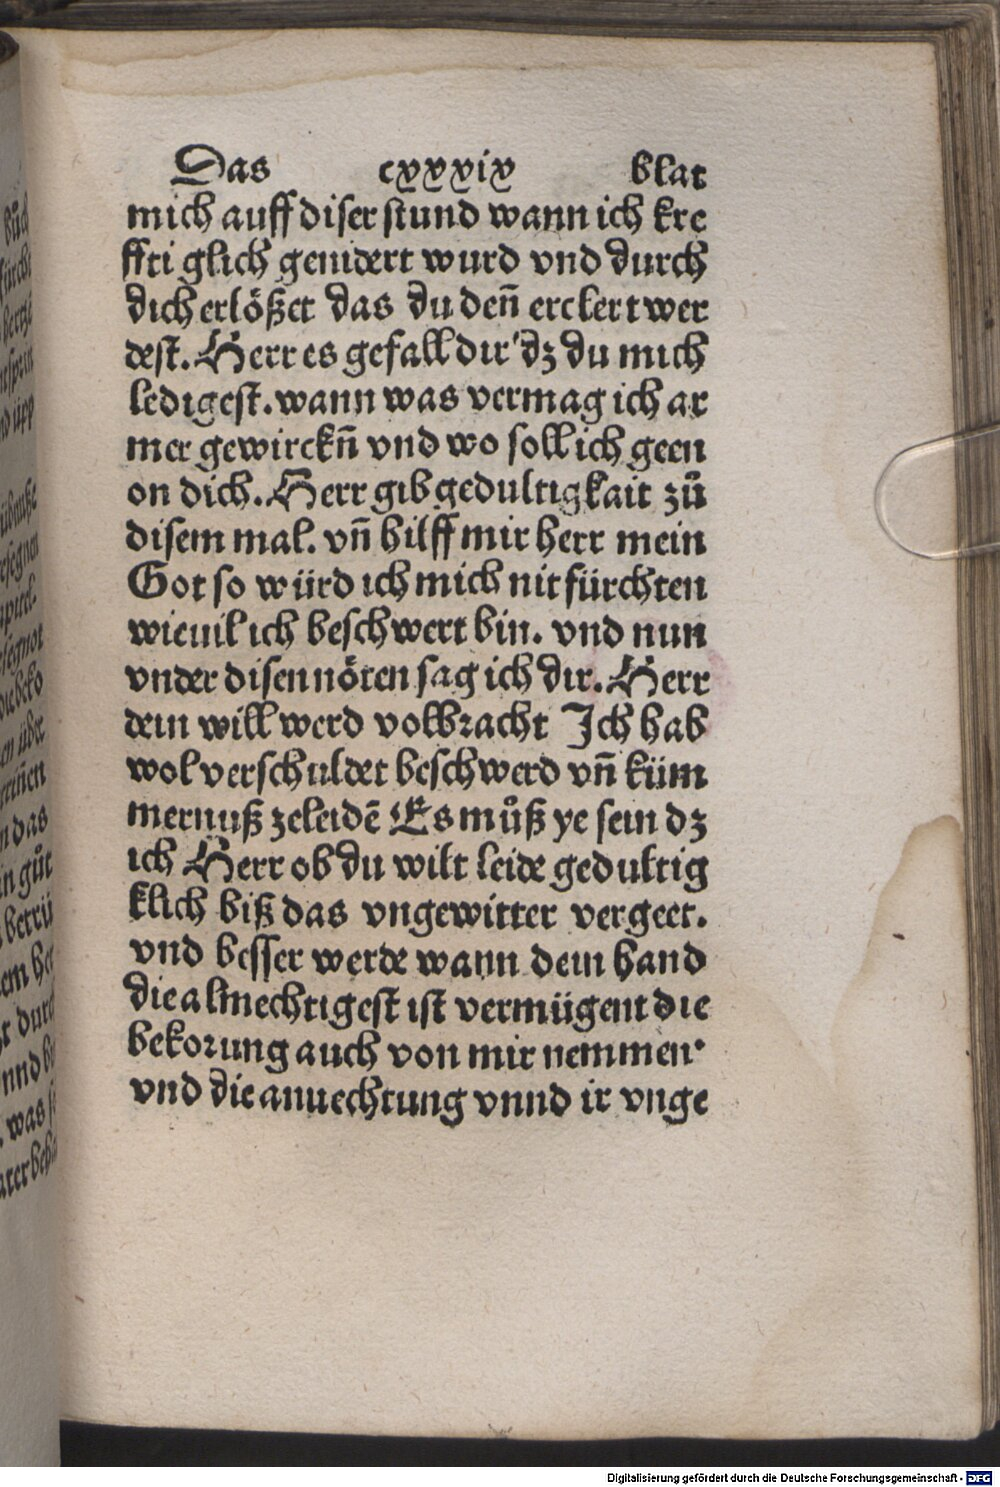 Das cxxxix blat
mich auff diser stund wann ich kre
ffti glich genidert wurd vnd durch
dich erlößet das du den̄ erclert wer
dest. Herr es gefall dir dz du mich
ledigest. wann was vermag ich ar
mer gewirckn̄ vnd wo soll ich geen
on dich. Herr gib gedultigkait zů
disem mal. vn̄ hilff mir herr mein
Got so würd ich mich nit fürchten
wieuil ich beschwert bin. vnd nun
vnder disen nöten sag ich dir. Herr
dein will werd volbracht Ich hab
wol verschuldet beschwerd vn̄ küm
mernuß zeleidē Es můß ye sein dz
ich Herr ob du wilt leide gedultig
klich biß das vngewitter vergeet.
vnd besser werde wann dein hand
die almechtigest ist vermügent die
bekorung auch von mir nemmen·
vnd die anuechtung vnnd ir vnge
Digitalisierung gefördert durch die Deutsche Forschungsgemeinschaft - DFG